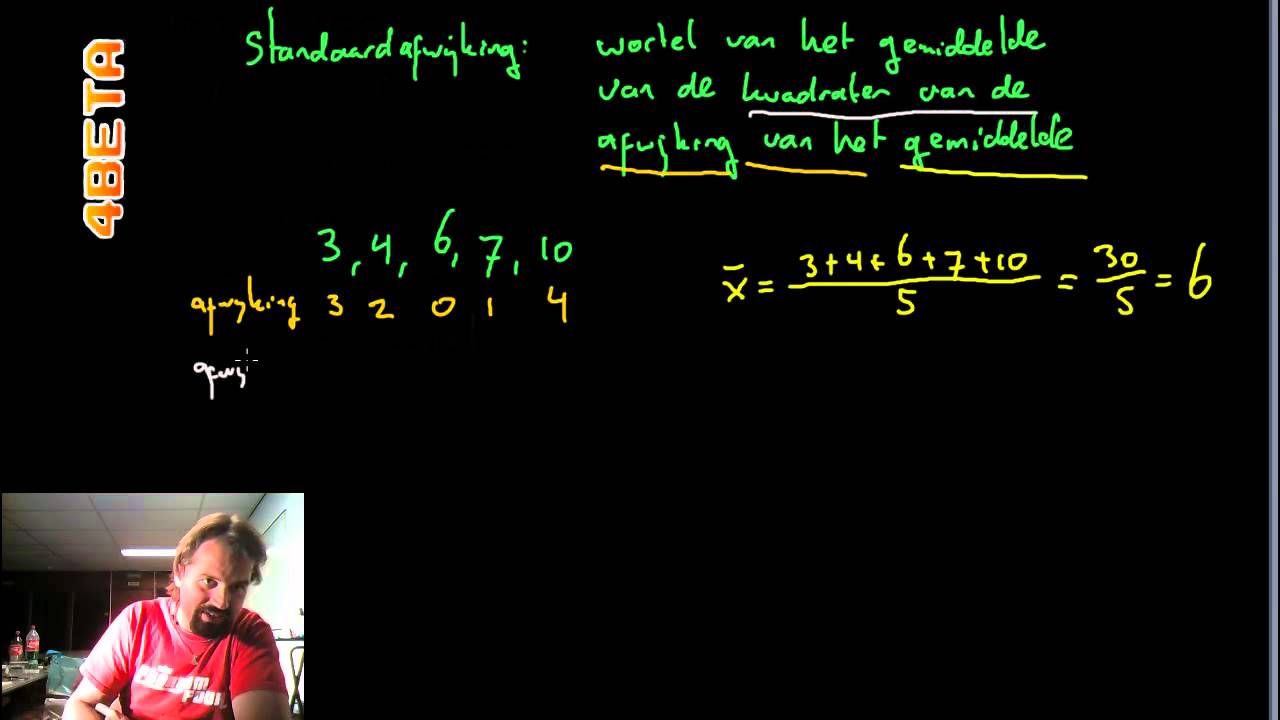 4BETA
Standaardafwijking: wortel van het gemiddelde
van de kwadraten van de
afwijking van het gemiddelde
3, 4, 6, 7, 10
afwijking 3 2 0 1 4
x̄ = 3+4+6+7+10 / 5 = 30 / 5 = 6
afwij